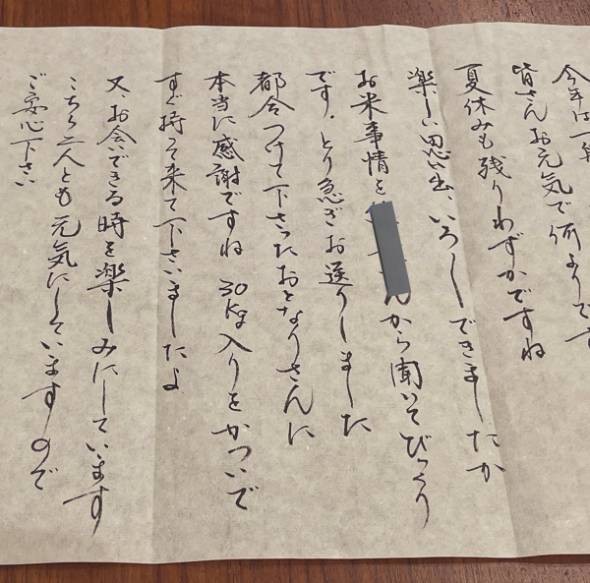 今年は一年
皆さんお元気で何よりです
夏休みも残りわずかですね
楽しい思い出、いろいろできましたか
お米事情を んから聞いてびっくり
です。とり急ぎお送りしました
都合つけて下さったおとなりさんに
本当に感謝ですね 30kg入りをかついで
すぐ持って来て下さいましたよ
又、お会いできる時を楽しみにしています
こちら二人とも元気にしていますので
ご安心下さい